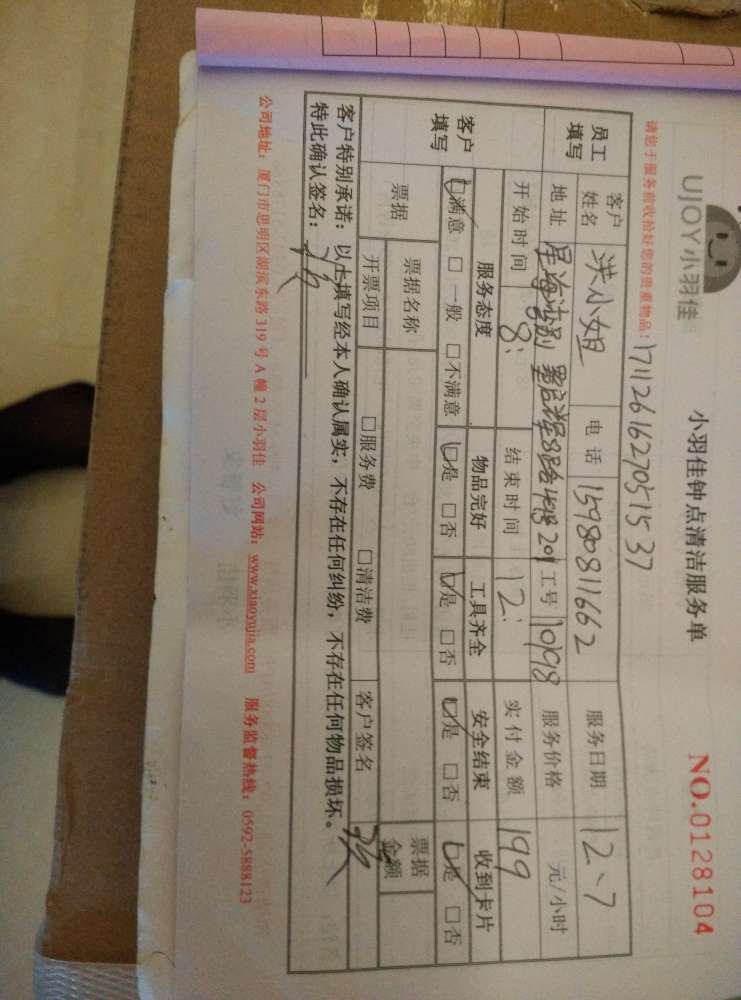 UJOY小羽佳
小羽佳钟点清洁服务单
NO.0128104
请您于服务前收拾好您的贵重物品!
17112616270515 37
员工填写 客户姓名 洪小姐 电话 15980811662 服务日期 12、7
地址 星海湾别墅 8号 201 工号 10198 服务价格 元/小时
开始时间 8: 结束时间 12: 实付金额 199
客户填写 服务态度 物品完好 工具齐全 安全结束 收到卡片
□满意 □一般 □不满意 □是 □否 □是 □否 □是 □否 □是 □否
票据 票据名称 票据金额
开票项目 □服务费 □清洁费 客户签名
客户特别承诺：以上填写经本人确认属实，不存在任何纠纷，不存在任何物品损坏。
特此确认签名：
公司地址：厦门市思明区湖滨东路319号A幢2层小羽佳 公司网站：www.xiaoyujia.com 服务监督热线：0592-5888123